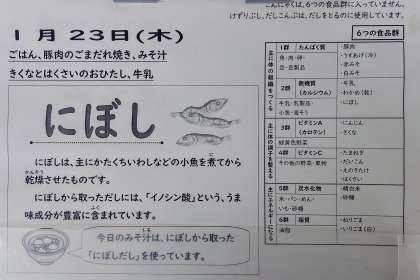 こんにゃくは、6つの食品群に入っていません。
けずりぶし、だしこんぶは、だしをとるのに使用しています。
1月23日(木)
ごはん、豚肉のごまだれ焼き、みそ汁
きくなとはくさいのおひたし、牛乳
にぼし
にぼしは、主にかたくちいわしなどの小魚を煮てから
乾燥させたものです。
かんそう
にぼしから取っただしには、「イノシン酸」という、うま
味成分が豊富に含まれています。
今日のみそ汁は、にぼしから取った
「にぼしだし」を使っています。
6つの食品群
主に体の組織をつくる
1群 たんぱく質
魚・肉・卵・
豆・豆製品
・豚肉
・うすあげ(冷)
・赤みそ
・白みそ
2群 無機質
(カルシウム)
牛乳・乳製品・
小魚・海そう
・牛乳
・わかめ(乾)
・にぼし
主に体の調子を整える
3群 ビタミンA
(カロテン)
緑黄色野菜
・にんじん
・きくな
4群 ビタミンC
その他の野菜・果物
・たまねぎ
・だいこん
・えのきたけ
・はくさい
主にエネルギーになる
5群 炭水化物
米・パン・めん・
いも・砂糖
・精白米
・砂糖
6群 脂質
油脂
・ねりごま
・いりごま(白)